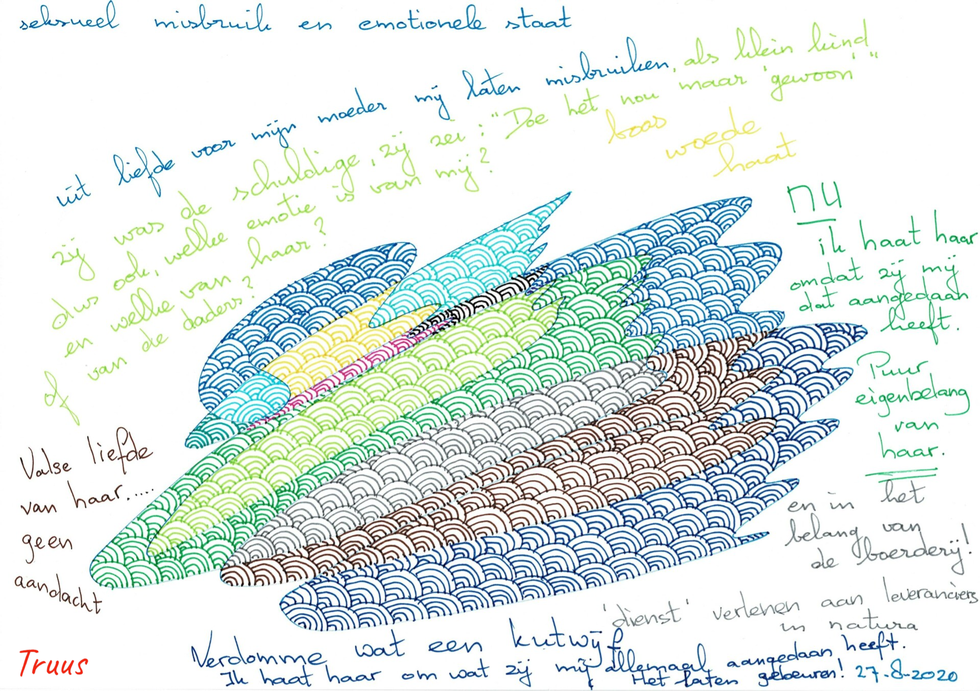 seksueel misbruik en emotionele staat
uit liefde voor mijn moeder mij laten misbruiken, als klein kind
zij was de schuldige, zij zei: "Doe het nou maar 'gewoon'"
dus ook, welke emotie is van mij?
en welke van haar?
of van de daders?
boos
woede
haat
nu
ik haat haar
omdat zij mij
dat aangedaan
heeft.
Puur
eigenbelang
van
haar.
en in het
belang van
de boerderij!
'dienst' verlenen aan leveranciers
in natura
Valse liefde
van haar.....
geen
aandacht
Verdomme wat een kutwijf.
Ik haat haar om wat zij mij allemaal aangedaan heeft.
Het laten gebeuren! 27-8-2020
Truus